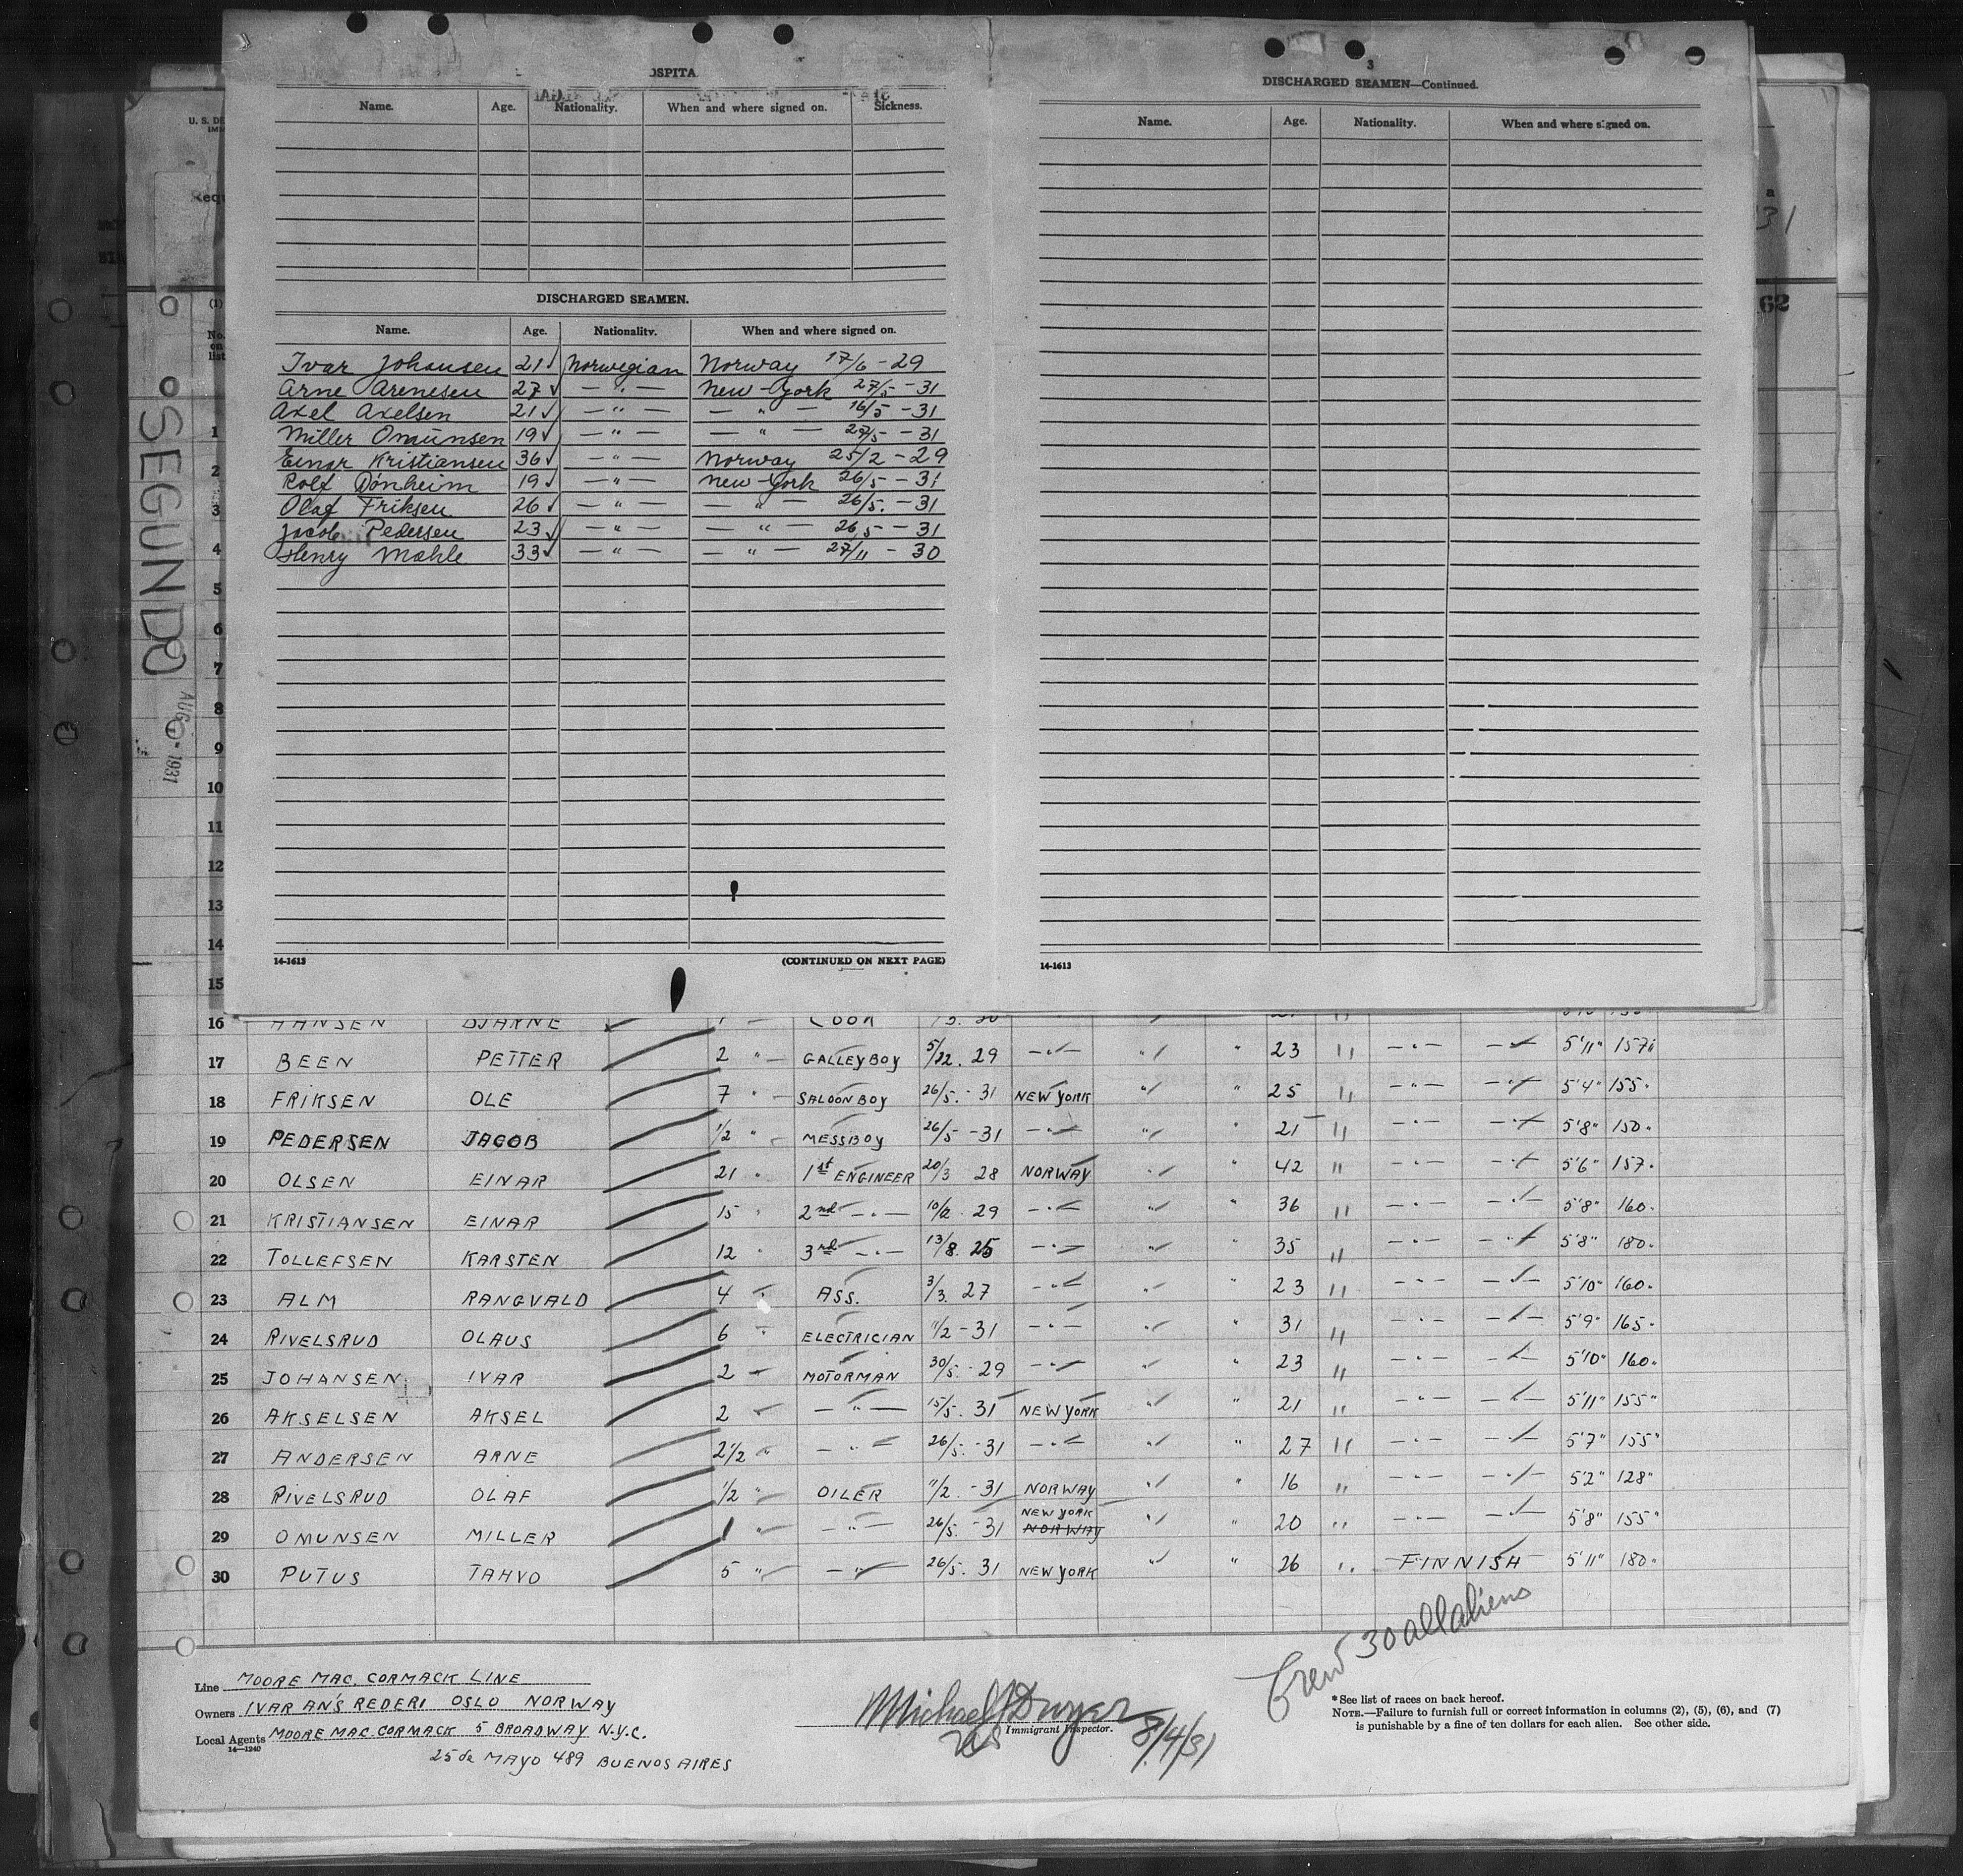 OSPITA
Name. Age. Nationality. When and where signed on. Sickness.
DISCHARGED SEAMEN.
Name. Age. Nationality. When and where signed on.
Ivar Johansen 21 Norwegian Norway 17/6 - 29
Arne Arenesen 27 — " — New-York 27/5 - 31
Axel Axelsen 21 — " — — " — 16/5 - 31
Miller Omunsen 19 — " — — " — 27/5 - 31
Einar Kristiansen 36 — " — Norway 25/2 - 29
Rolf Dönheim 19 — " — New-York 26/5 - 31
Olaf Friksen 26 — " — — " — 26/5. - 31
Jacob Pedersen 23 — " — — " — 26/5 - 31
Henry Mæhle 33 — " — — " — 27/11 - 30
14-1613 (CONTINUED ON NEXT PAGE)
3
DISCHARGED SEAMEN—Continued.
Name. Age. Nationality. When and where signed on.
14-1613
U. S. DE
Requ
a
31
62
(1)
No. on list
SEGUNDO
AUG - 1931
1
2
3
4
5
6
7
8
9
10
11
12
13
14
15
16 HANSEN BJARNE COOK
17 BEEN PETTER 2 " GALLEYBOY 5/22. 29 — " — " " 23 " — " — — " — 5'11" 157"
18 FRIKSEN OLE 7 " SALOONBOY 26/5. - 31 NEW YORK " " 25 " — " — — " — 5'4" 155"
19 PEDERSEN JACOB 1/2 " MESSBOY 26/5 - 31 — " — " " 21 " — " — — " — 5'8" 150"
20 OLSEN EINAR 21 " 1st ENGINEER 20/3 28 NORWAY " " 42 " — " — — " — 5'6" 157"
21 KRISTIANSEN EINAR 15 " 2nd — " — 10/2 29 — " — " " 36 " — " — — " — 5'8" 160"
22 TOLLEFSEN KARSTEN 12 " 3rd — " — 13/8. 25 — " — " " 35 " — " — — " — 5'8" 180"
23 ALM RANGVALD 4 " ASS. 3/3. 27 — " — " " 23 " — " — — " — 5'10" 160"
24 RIVELSRUD OLAUS 6 " ELECTRICIAN 11/2 - 31 — " — " " 31 " — " — — " — 5'9" 165"
25 JOHANSEN IVAR 2 " MOTORMAN 30/5. - 29 — " — " " 23 " — " — — " — 5'10" 160"
26 AKSELSEN AKSEL 2 " — " — 15/5. 31 NEW YORK " " 21 " — " — — " — 5'11" 155"
27 ANDERSEN ARNE 2 1/2 " — " — 26/5. - 31 — " — " " 27 " — " — — " — 5'7" 155"
28 RIVELSRUD OLAF 1/2 " OILER 11/2. - 31 NORWAY " " 16 " — " — — " — 5'2" 128"
29 OMUNSEN MILLER 1 " — " — 26/5. - 31 NEW YORK NORWAY " " 20 " — " — — " — 5'8" 155"
30 PUTUS TAHVO 5 " — " — 26/5. 31 NEW YORK " " 26 " FINNISH 5'11" 180"
Crew 30 all aliens
Line MOORE MAC. CORMACK LINE
Owners IVAR AN'S REDERI OSLO NORWAY
Local Agents MOORE MAC. CORMACK 5 BROADWAY N.Y.C.
14—1240
25 de MAYO 489 BUENOS AIRES
Michael J Dwyer
Immigrant Inspector.
8/4/31
*See list of races on back hereof.
NOTE.—Failure to furnish full or correct information in columns (2), (5), (6), and (7)
is punishable by a fine of ten dollars for each alien. See other side.